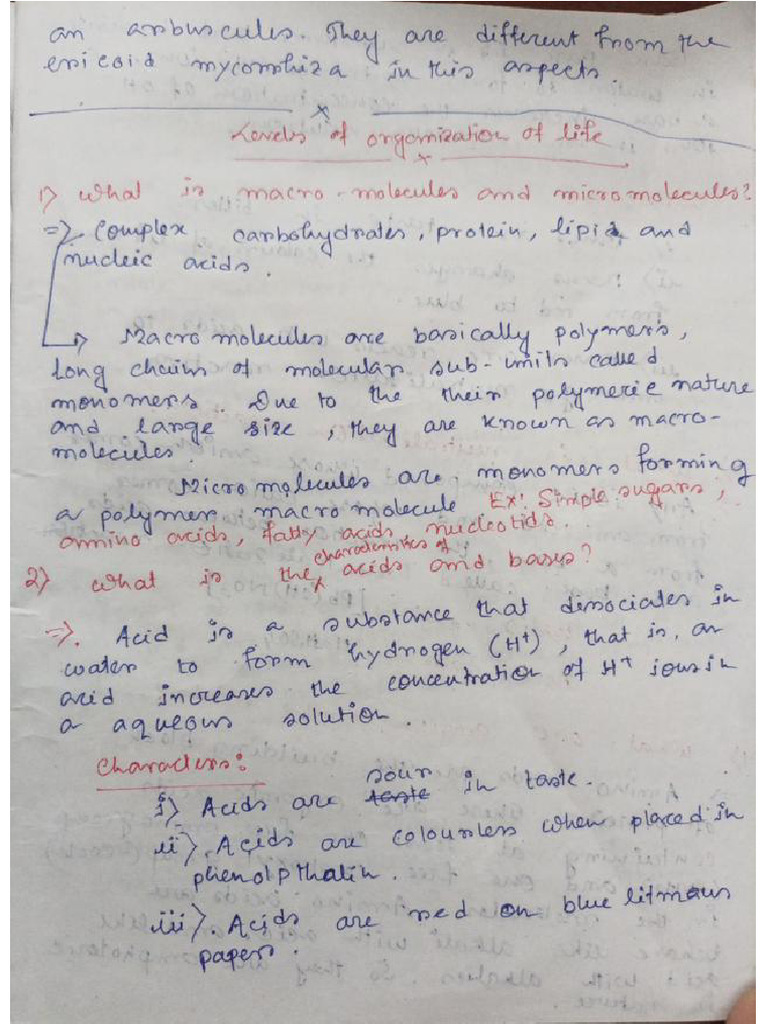 an arbuscules. They are different from the
ericoid mycorrhiza in this aspects.
Levels of organization of life
1) What is macro-molecules and micromolecules?
=> Complex carbohydrates, protein, lipid and
nucleic acids.
Macromolecules are basically polymers,
long chains of molecular sub-units called
monomers. Due to the their polymeric nature
and large size, they are known as macro-
molecules.
Micromolecules are monomers forming
a polymer macromolecule Ex: Simple sugars,
amino acids, fatty acids nucleotids.
2) What is the characteristics of acids and bases?
=> Acid is a substance that dissociates in
water to form hydrogen (H⁺), that is, an
acid increases the concentration of H⁺ ions in
a aqueous solution.
Characters:
i) Acids are taste sour in taste.
ii) Acids are colourless when placed in
phenolpthalin.
iii) Acids are red on blue litmaus
papers.